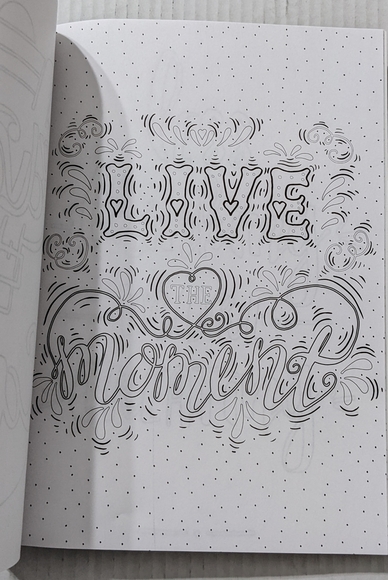 LIVE
THE
moment